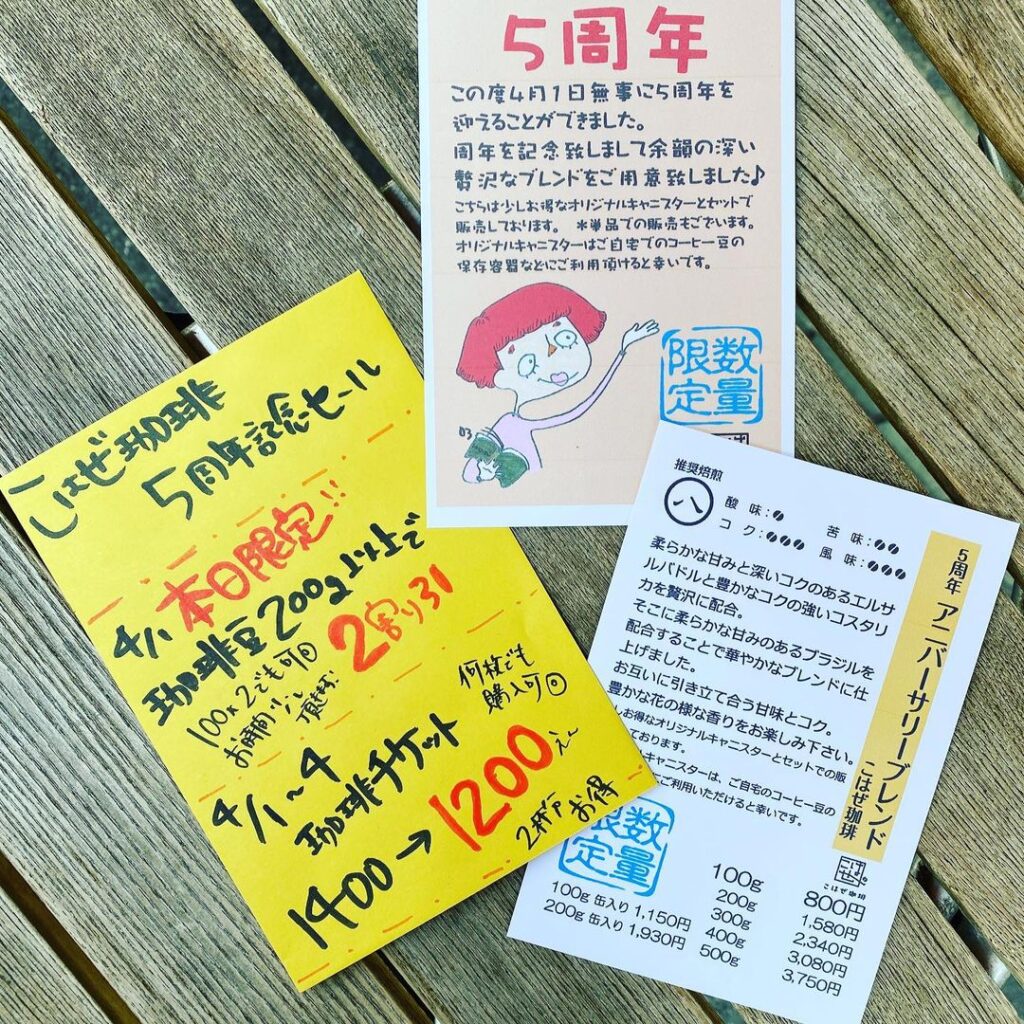 5周年
この度4月1日無事に5周年を
迎えることができました。
周年を記念致しまして余韻の深い
贅沢なブレンドをご用意致しました♪
こちらは少しお得なオリジナルキャニスターとセットで
販売しております。 *単品での販売もございます。
オリジナルキャニスターはご自宅でのコーヒー豆の
保存容器などにご利用頂けると幸いです。
数量
限定
こはぜ珈琲
5周年記念セール
4/1 本日限定!!
珈琲豆200g以上で
2割り引
100×2でも可
お時間少し
頂きます。
4/1~4
珈琲チケット
何枚でも
購入可
1400→1200
2杯分
お得
推奨焙煎
八
酸 味:
苦 味:
コ ク:
風 味:
5周年 アニバーサリーブレンド
こはぜ珈琲
柔らかな甘みと深いコクのあるエルサ
ルバドルと豊かなコクの強いコスタリ
カを贅沢に配合。
そこに柔らかな甘みのあるブラジルを
配合することで華やかなブレンドに仕
上げました。
お互いに引き立て合う甘味とコク。
豊かな花の様な香りをお楽しみ下さい。
しお得なオリジナルキャニスターとセットでの販
ております。
キャニスターは、ご自宅のコーヒー豆の
にご利用いただけると幸いです。
数量
限定
こはぜ珈琲
100g 800円
200g 1,580円
300g 2,340円
400g 3,080円
500g 3,750円
100g 缶入り 1,150円
200g 缶入り 1,930円